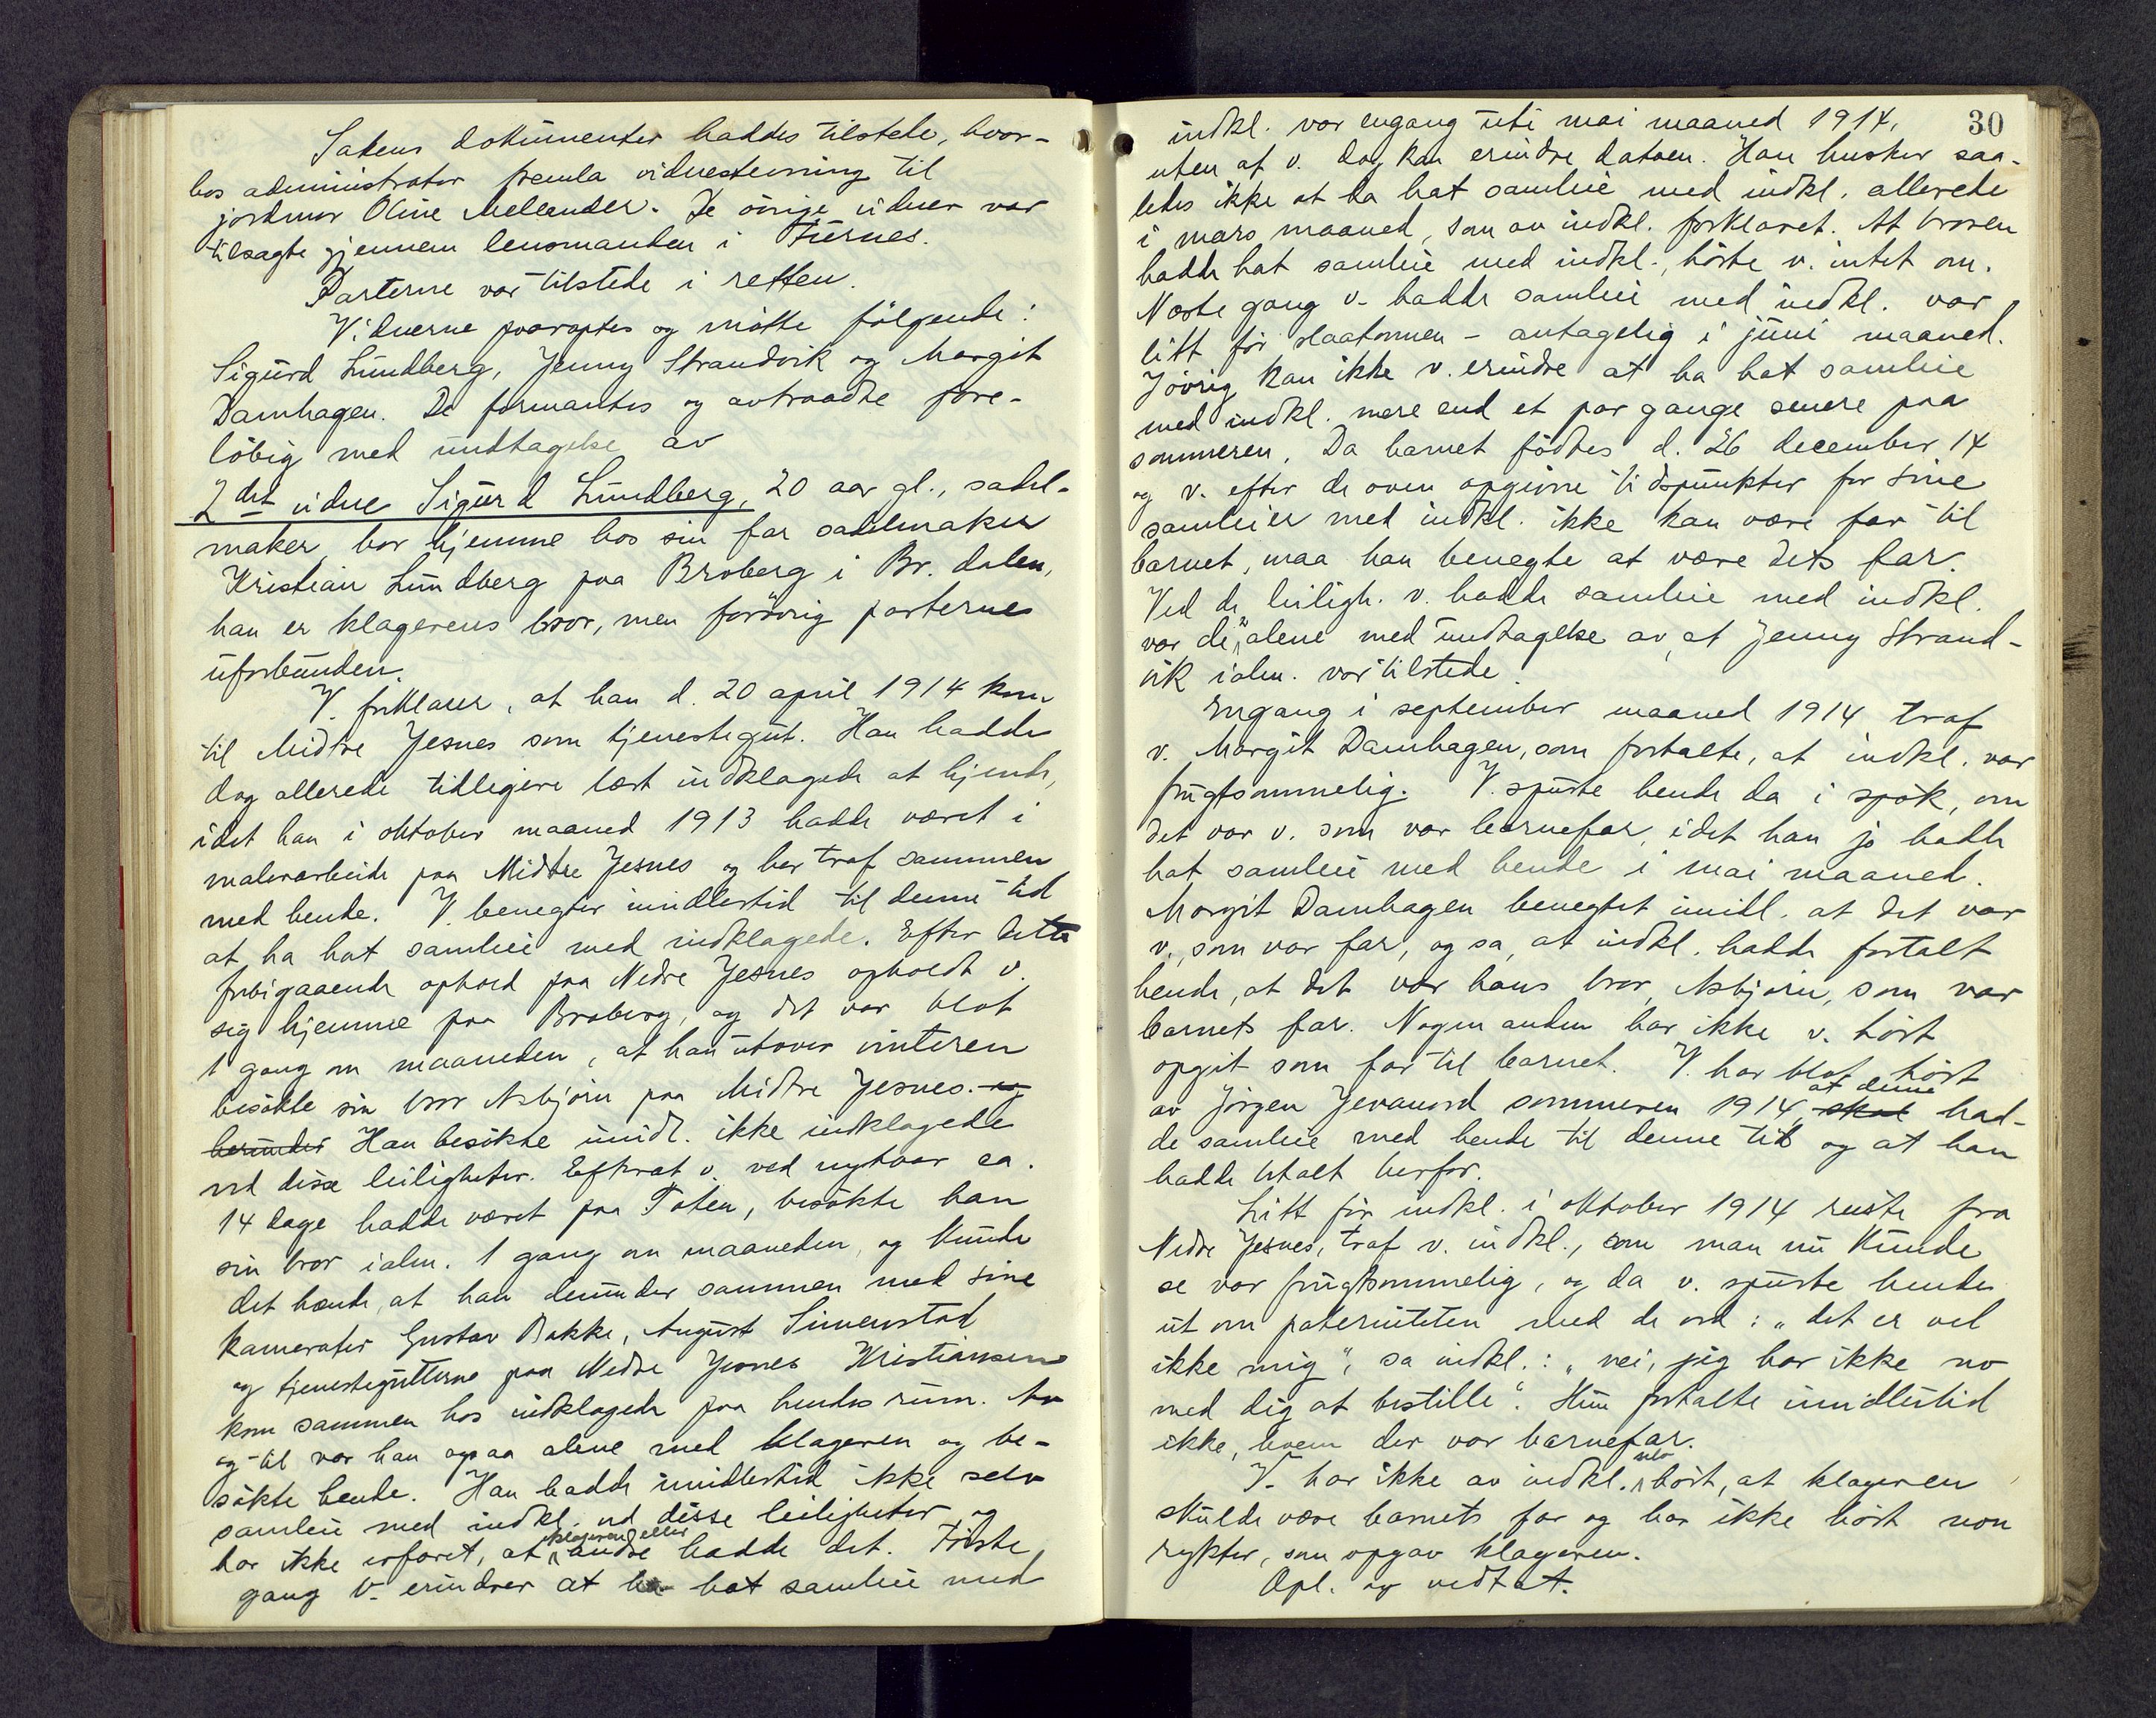 Sakens dokumenter haddes tilstede, hvor-
hos administrator fremla vidnestevning til
jordmor Oline Mellander. De øvrige vidner var
tilsagte gjennem lensmanden i Furnes.
Parterne var tilstede i retten.
Vidnerne paaroptes og møtte følgende:
Sigurd Lundberg, Jenny Strandvik og Margit
Damhagen. De formantes og avtraadte fore-
løbig med undtagelse av
2det vidne Sigurd Lundberg, 20 aar gl., sadel-
maker, bor hjemme hos sin far sadelmaker
Kristian Lundberg paa Broberg i Br. dalen,
han er klagerens bror, men forøvrig parterne
uforbunden.
V. forklarer, at han d. 20 april 1914 kom
til Midtre Jesnes som tjenestegut. Han hadde
dog allerede tidligere lært indklagede at kjende,
idet han i oktober maaned 1913 hadde været i
malerarbeide paa Midtre Jesnes og her traf sammen
med hende. V. benegter imidlertid til denne tid
at ha hat samleie med indklagede. Efter dette
forbigaaende ophold paa Nedre Jesnes opholdt v.
sig hjemme paa Broberg, og det var blot
1 gang om maaneden, at han utover vinteren
besøkte sin bror Asbjørn paa Midtre Jesnes. og
herunder Han besøkte imidl. ikke indklagede
ved disse leiligheter. Efterat v. ved nytaar ca.
14 dage hadde været paa Toten, besøkte han
sin bror ialm. 1 gang om maaneden, og kunde
det hænde, at han derunder sammen med sine
kamerater Gustav Bakke, August Simenstad
og tjenestegutterne paa Nedre Jesnes Kristiansen
kom sammen hos indklagede paa hendes rum. Av
og til var han ogsaa alene med klageren og be-
søkte hende. Han hadde imidlertid ikke selv
samleie med indkl. ved disse leiligheter og
har ikke erfaret, at klageren eller andre hadde det. Første
gang v. erindrer at ha hat samleie med
30
indkl. var engang uti mai maaned 1914,
uten at v. dog kan erindre datoen. Han husker saa-
ledes ikke at ha hat samleie med indkl. allerede
i mars maaned, som av indkl. forklaret. At broren
hadde hat samleie med indkl., hørte v. intet om.
Næste gang v. hadde samleie med indkl. var
litt før slaatonnen - antagelig i juni maaned.
Iøvrig kan ikke v. erindre at ha hat samleie
med indkl. mere end et par gange senere paa
sommeren. Da barnet fødtes d. 26 december 14
og v. efter de oven opgivne tidspunkter for sine
samleier med indkl. ikke kan være far til
barnet, maa han benegte at være dets far.
Ved de leiligh. v. hadde samleie med indkl.
var de alene med undtagelse av, at Jenny Strand-
vik ialm. var tilstede.
Engang i september maaned 1914 traf
v. Margit Damhagen, som fortalte, at indkl. var
frugtsommelig. V. spurte hende da i spøk, om
det var v. som var barnefar, idet han jo hadde
hat samleie med hende i mai maaned.
Margit Damhagen benegtet imidl. at det var
v., som var far, og sa, at indkl. hadde fortalt
hende, at det var hans bror, Asbjørn, som var
barnets far. Nogen anden har ikke v. hørt
opgit som far til barnet. V. har blot hørt
av Jørgen Jevanord sommeren 1914, skal at denne had-
de samleie med hende til denne tid og at han
hadde betalt herfor.
Litt før indkl. i oktober 1914 reiste fra
Nedre Jesnes, traf v. indkl., som man nu kunde
se var frugtsommelig, og da v. spurte hende
ut om paterniteten med de ord: "det er vel
ikke mig", sa indkl.: "nei, jeg har ikke no
med dig at bestille". Hun fortalte imidlertid
ikke, hvem der var barnefar.
V. har ikke av indkl. selv hørt, at klageren
skulde være barnets far og har ikke hørt noen
rykter, som opgav klageren.
Opl. og vedtat.